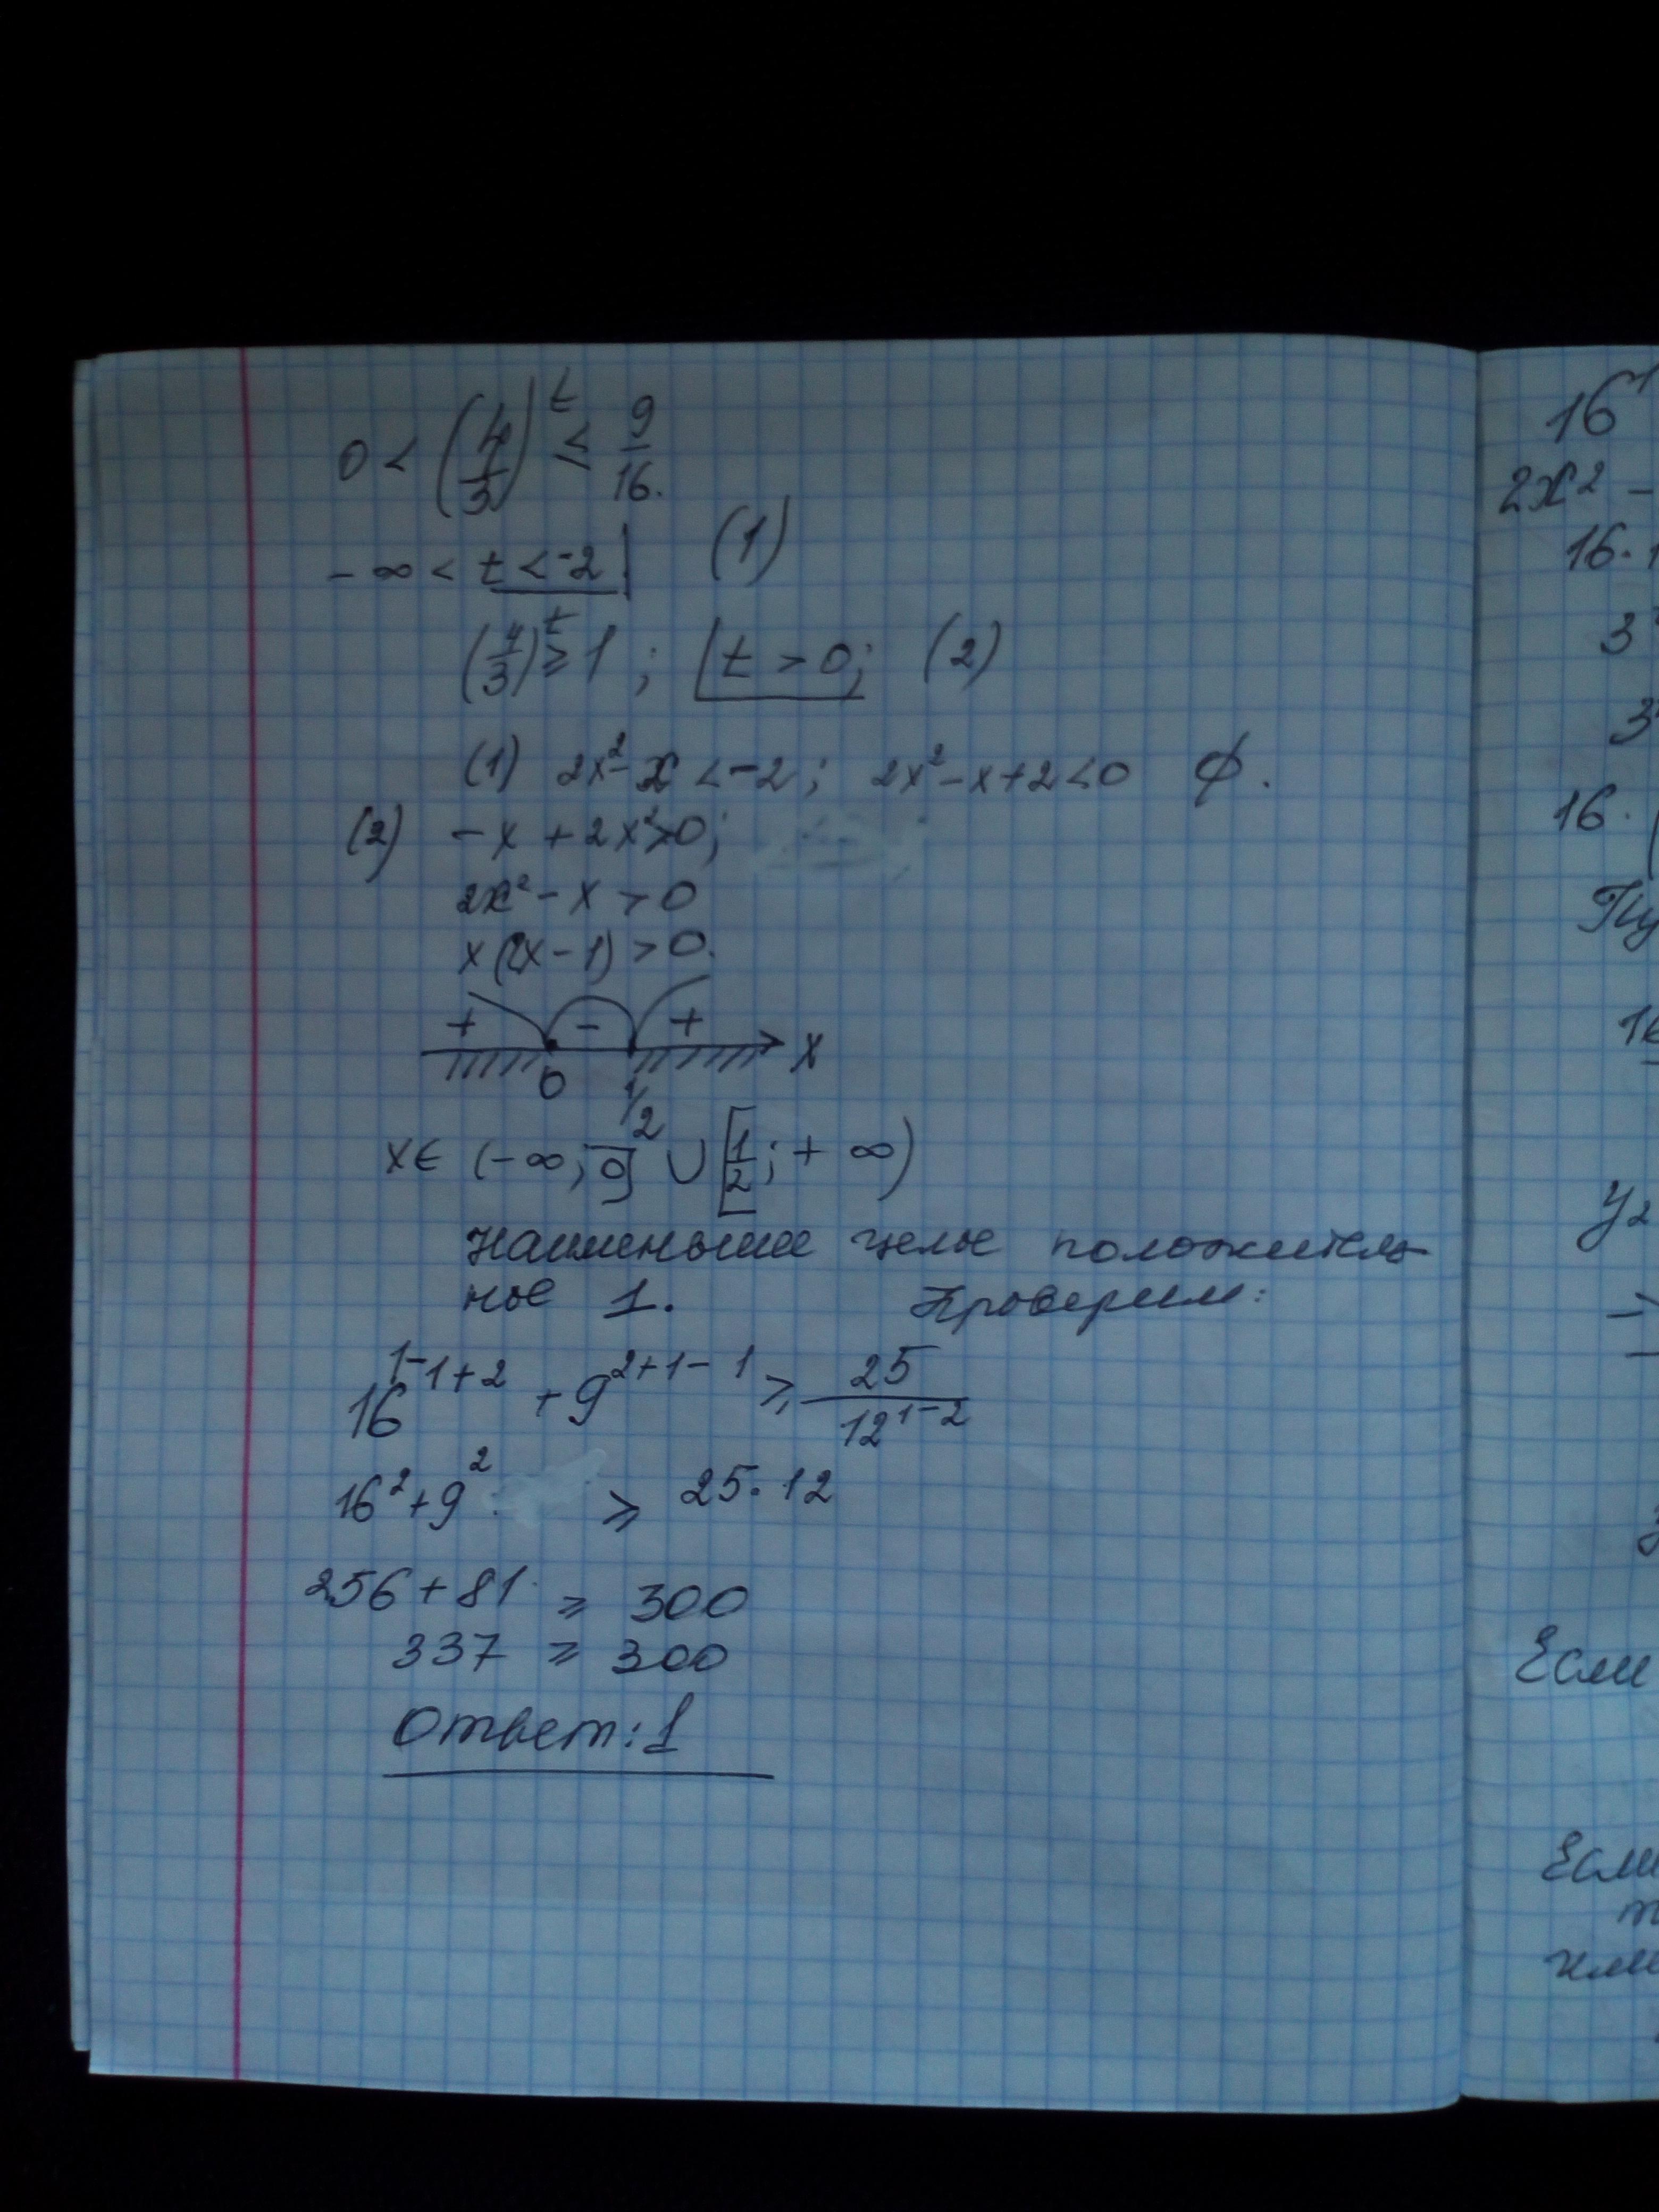 0 < (4/3)^t ≤ 9/16.
- ∞ < t < -2 (1)
(4/3)^t ≥ 1 ; t > 0; (2)
(1) 2x² - x < -2; 2x² - x + 2 < 0 ∅.
(2) - x + 2x² > 0;
2x² - x > 0
x(2x - 1) > 0.
+ - +
0 1/2 x
x ∈ (-∞; 0] ∪ [1/2; + ∞)
Наименьшее целое положитель-
ное 1. Проверим:
16^(1-1+2) + 9^(2+1-1) ≥ 25/12^(1-2)
16² + 9² ≥ 25·12
256 + 81 ≥ 300
337 ≥ 300
Ответ: 1
16
2x² -
16·
3
3
16·
y₂
Если
Если